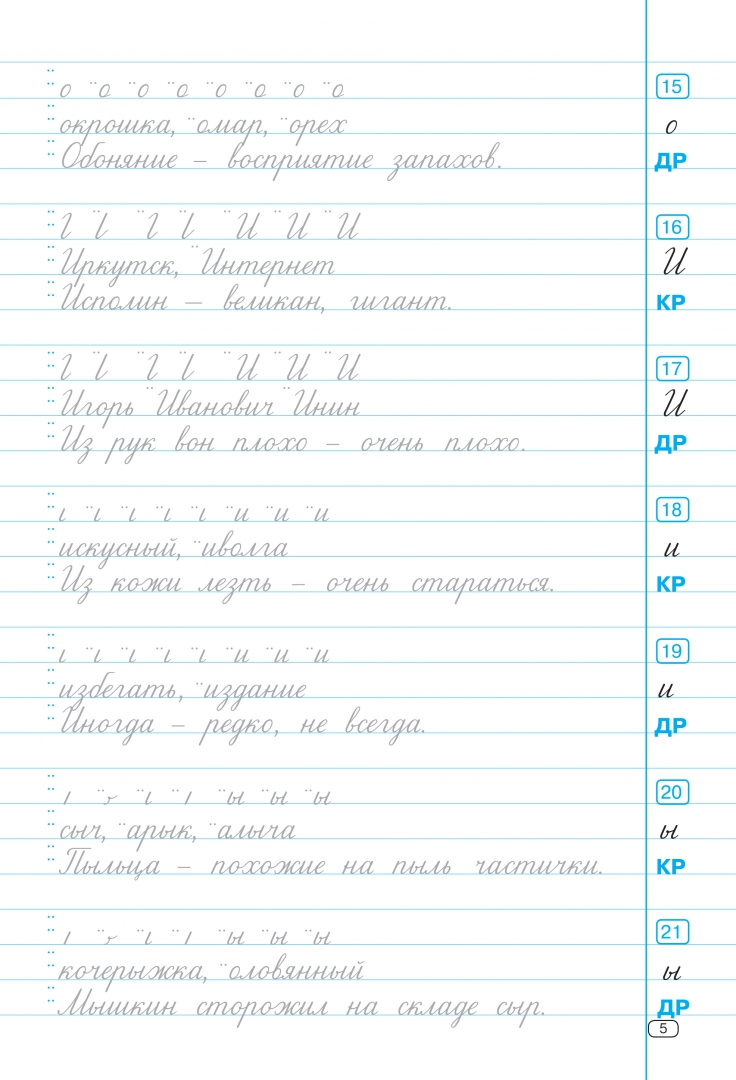 о о о о о о о о 15
окрошка, омар, орех о
Обоняние – восприятие запахов. ДР
И И И 16
Иркутск, Интернет И
Исполин – великан, гигант. КР
И И И 17
Игорь Иванович Инин И
Из рук вон плохо – очень плохо. ДР
и и и 18
искусный, иволга и
Из кожи лезть – очень стараться. КР
и и и 19
избегать, издание и
Иногда – редко, не всегда. ДР
ы ы ы 20
сыч, арык, алыча ы
Пыльца – похожие на пыль частички. КР
ы ы ы 21
кочерыжка, оловянный ы
Мышкин сторожил на складе сыр. ДР
5